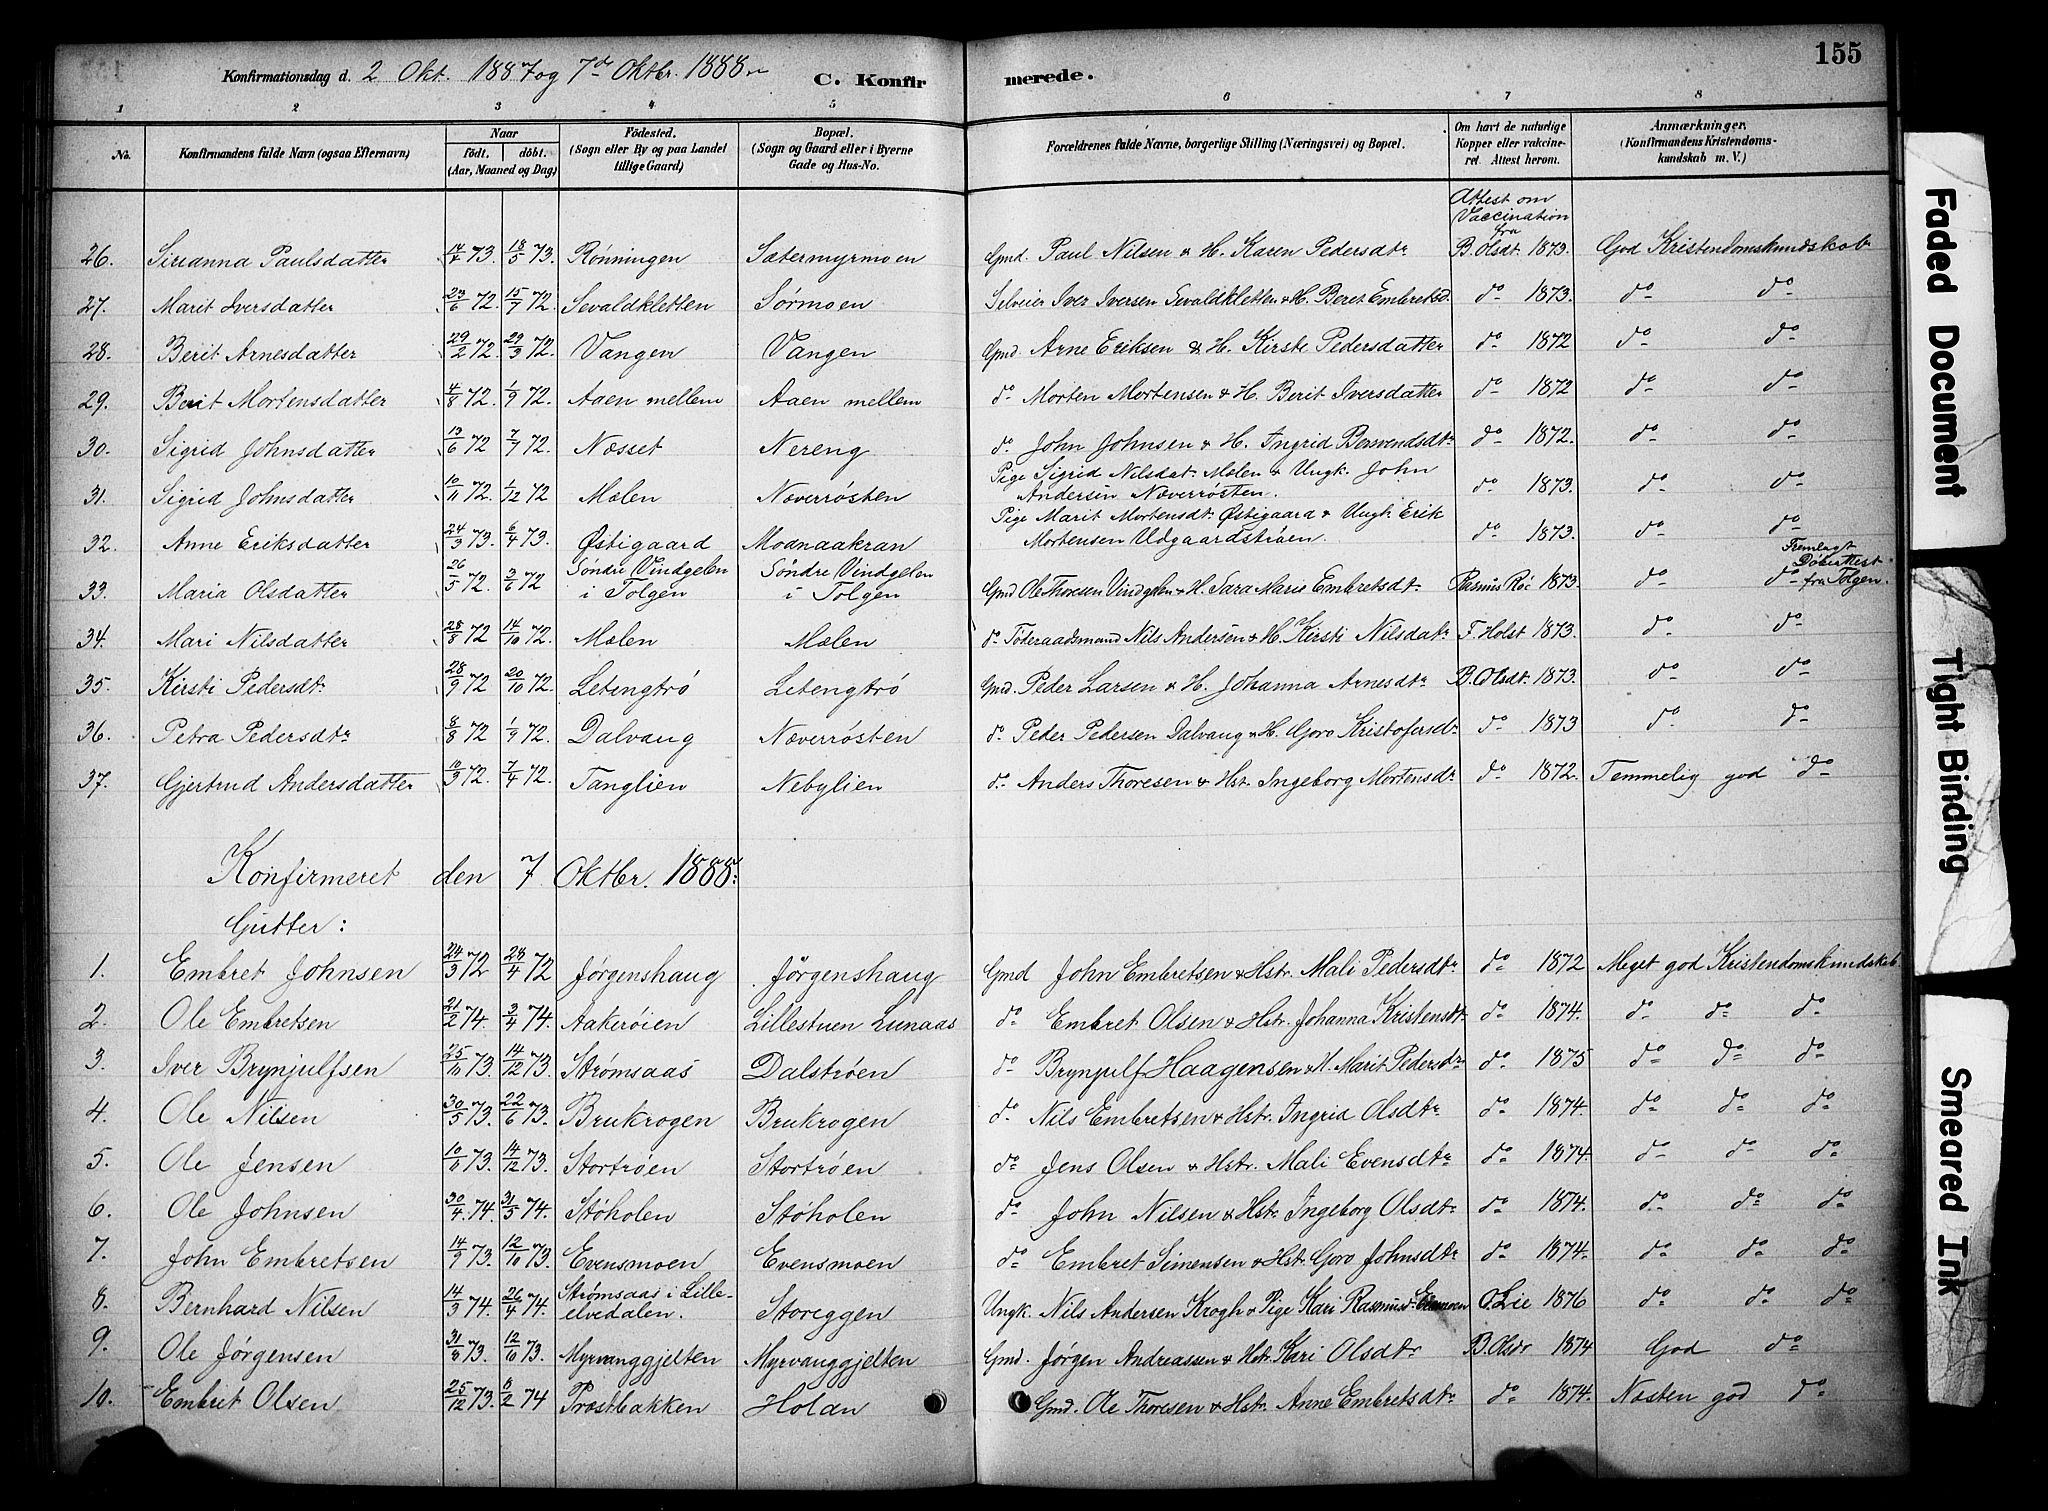 155
Konfirmationsdag d. 2 Okt. 1887 og 7de Oktbr. 1888.
C. Konfirmerede.
1 2 3 4 5 6 7 8
No. Konfirmandens fulde Navn (ogsaa Efternavn) Naar født. døbt. (Aar, Maaned og Dag) Födested. (Sogn eller By og paa Landet tillige Gaard) Bopæl. (Sogn og Gaard eller i Byerne Gade og Hus-No. Forældrenes fulde Navne, borgerlige Stilling (Næringsvei) og Bopæl. Om havt de naturlige Kopper eller vaccineret. Attest herom. Anmærkninger. (Konfirmandens Kristendomskundskab m. V.)
Attest om Vaccination fra
26. Sirianna Paulsdatter 14/4 73. 18/5 73. Rønningen Sætermyrmoen Gmd. Paul Nilsen & H. Karen Pedersdtr B. Olsdt. 1873. God Kristendomskundskab
27. Marit Iversdatter 23/6 72. 15/7 72. Sevaldkletten Sørmoen Selveier Iver Iversen Sevaldkletten & H. Beret Embretsd. do 1873. do do
28. Berit Arnesdatter 29/2 72. 29/3 72. Vangen Vangen Gmd. Arne Eriksen & H. Kirsti Pedersdatter do 1872 do do
29. Berit Mortensdatter 4/8 72. 1/9 72. Aaen mellem Aaen mellem do Morten Mortensen & H. Berit Iversdatter do 1872 do do
30. Sigrid Johnsdatter 13/6 72 7/7 72. Næsset Nereng do John Johnsen & H. Ingrid Berwendsdtr do 1872. do do
31. Sigrid Johnsdatter 10/11 72. 1/12 72 Mælen Næverrøsten Pige Sigrid Nilsdat. Mælen & Ungk. John Andersen Næverrøsten. do 1873. do do
32. Anne Eriksdatter 24/3 73. 6/4 73. Østigaard Modnaakran Pige Marit Mortensdt. Østigaard & Ungk. Erik Mortensen Udgaardstrøen. do 1873. do do
33. Maria Olsdatter 26/5 72. 3/6 72 Søndre Vindgelen i Tolgen Søndre Vindgelen i Tolgen Gmd Ole Thoresen Vindgelen & H. Sara Marie Embretsdt. Rasmus Ro 1873. do do Fremlagt Døbeattest fra Tolgen.
34. Mari Nilsdatter 28/8 72 14/10 72. Mælen Mælen do Føderaadsmand Nils Andersen & H. Kirsti Nilsdatr F. Holst 1873. do do
35. Kirsti Pedersdt. 28/9 72 20/10 72. Letengtrø Letengtrø Gmd. Peder Larsen & H. Johanna Arnesdtr B. Olsdt. 1873. do do
36. Petra Pedersdtr 8/8 72 1/9 72. Dalvang Næverrøsten do Peder Pedersen Dalvang & H. Goro Kristofersdtr do 1873 do do
37. Gjertrud Andersdatter 10/3 72. 7/4 72. Tanglien Nebylien do Anders Thoresen & Hst. Ingeborg Mortensdtr do 1872. Temmelig god do
Konfirmeret den 7 Oktbr. 1888.
Gutter:
1. Embret Johnsen 24/3 72 28/4 72 Jørgenshaug Jørgenshaug Gmd John Embretsen & Hstr. Mali Pedersdtr do 1872 Meget god Kristendomskundskab
2. Ole Embretsen 21/2 74. 3/4 74. Aakerøien Lillestuen Lunaas do Embret Olsen & Hstr. Johanna Kristensdt. do 1874. do do do
3. Iver Brynjulfsen 25/11 73. 14/12 73. Strømsaas Dalstrøen do Brynjulf Haagensen & H. Marit Pedersdtr do 1875 do do do
4. Ole Nilsen 30/5 73. 22/6 73. Brukrogen Brukrogen do Nils Embretsen & Hstr. Ingrid Olsdtr do 1874. do do do
5. Ole Jensen 10/11 73. 14/12 73. Stortrøen Stortrøen do Jens Olsen & Hstr. Mali Evensdtr do 1874. do do do
6. Ole Johnsen 30/4 74. 31/5 74. Støholen Støholen do John Nilsen & Hstr. Ingeborg Olsdtr do 1874. do do do
7. John Embretsen 14/9 73. 12/10 73. Evensmoen Evensmoen do Embret Simensen & Hstr. Goro Johnsdtr do 1874. do do do
8. Bernhard Nilsen 14/3 74. 26/4 74. Strømsaas i Lilleelvedalen. Storeggen Ungk. Nils Andersen Krogh & Pige Kari Rasmusd. O. Lie 1876 do do do
9. Ole Jørgensen 31/8 73. 12/10 73. Myrvanggjelten Myrvanggjelten Gmd. Jørgen Andreassen & Hstr. Kari Olsdtr B. Olsdtr 1874 God do
10. Embret Olsen 25/12 73. 8/2 74 Præstbakken Holan Gmd. Ole Thoresen & Hstr. Anne Embretsdtr do 1874. Næsten god do
Faded Document
Tight Binding
Smeared Ink